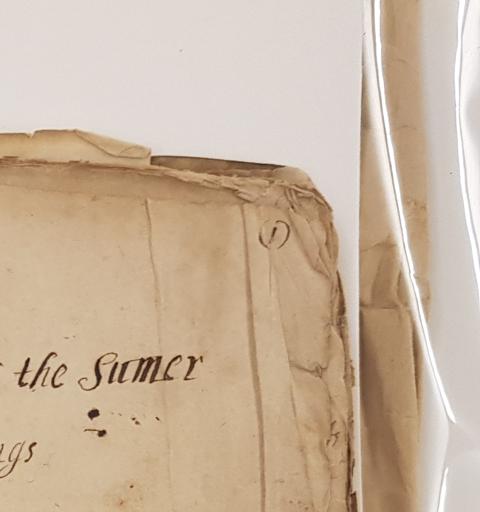 1
the Sumer
ngs